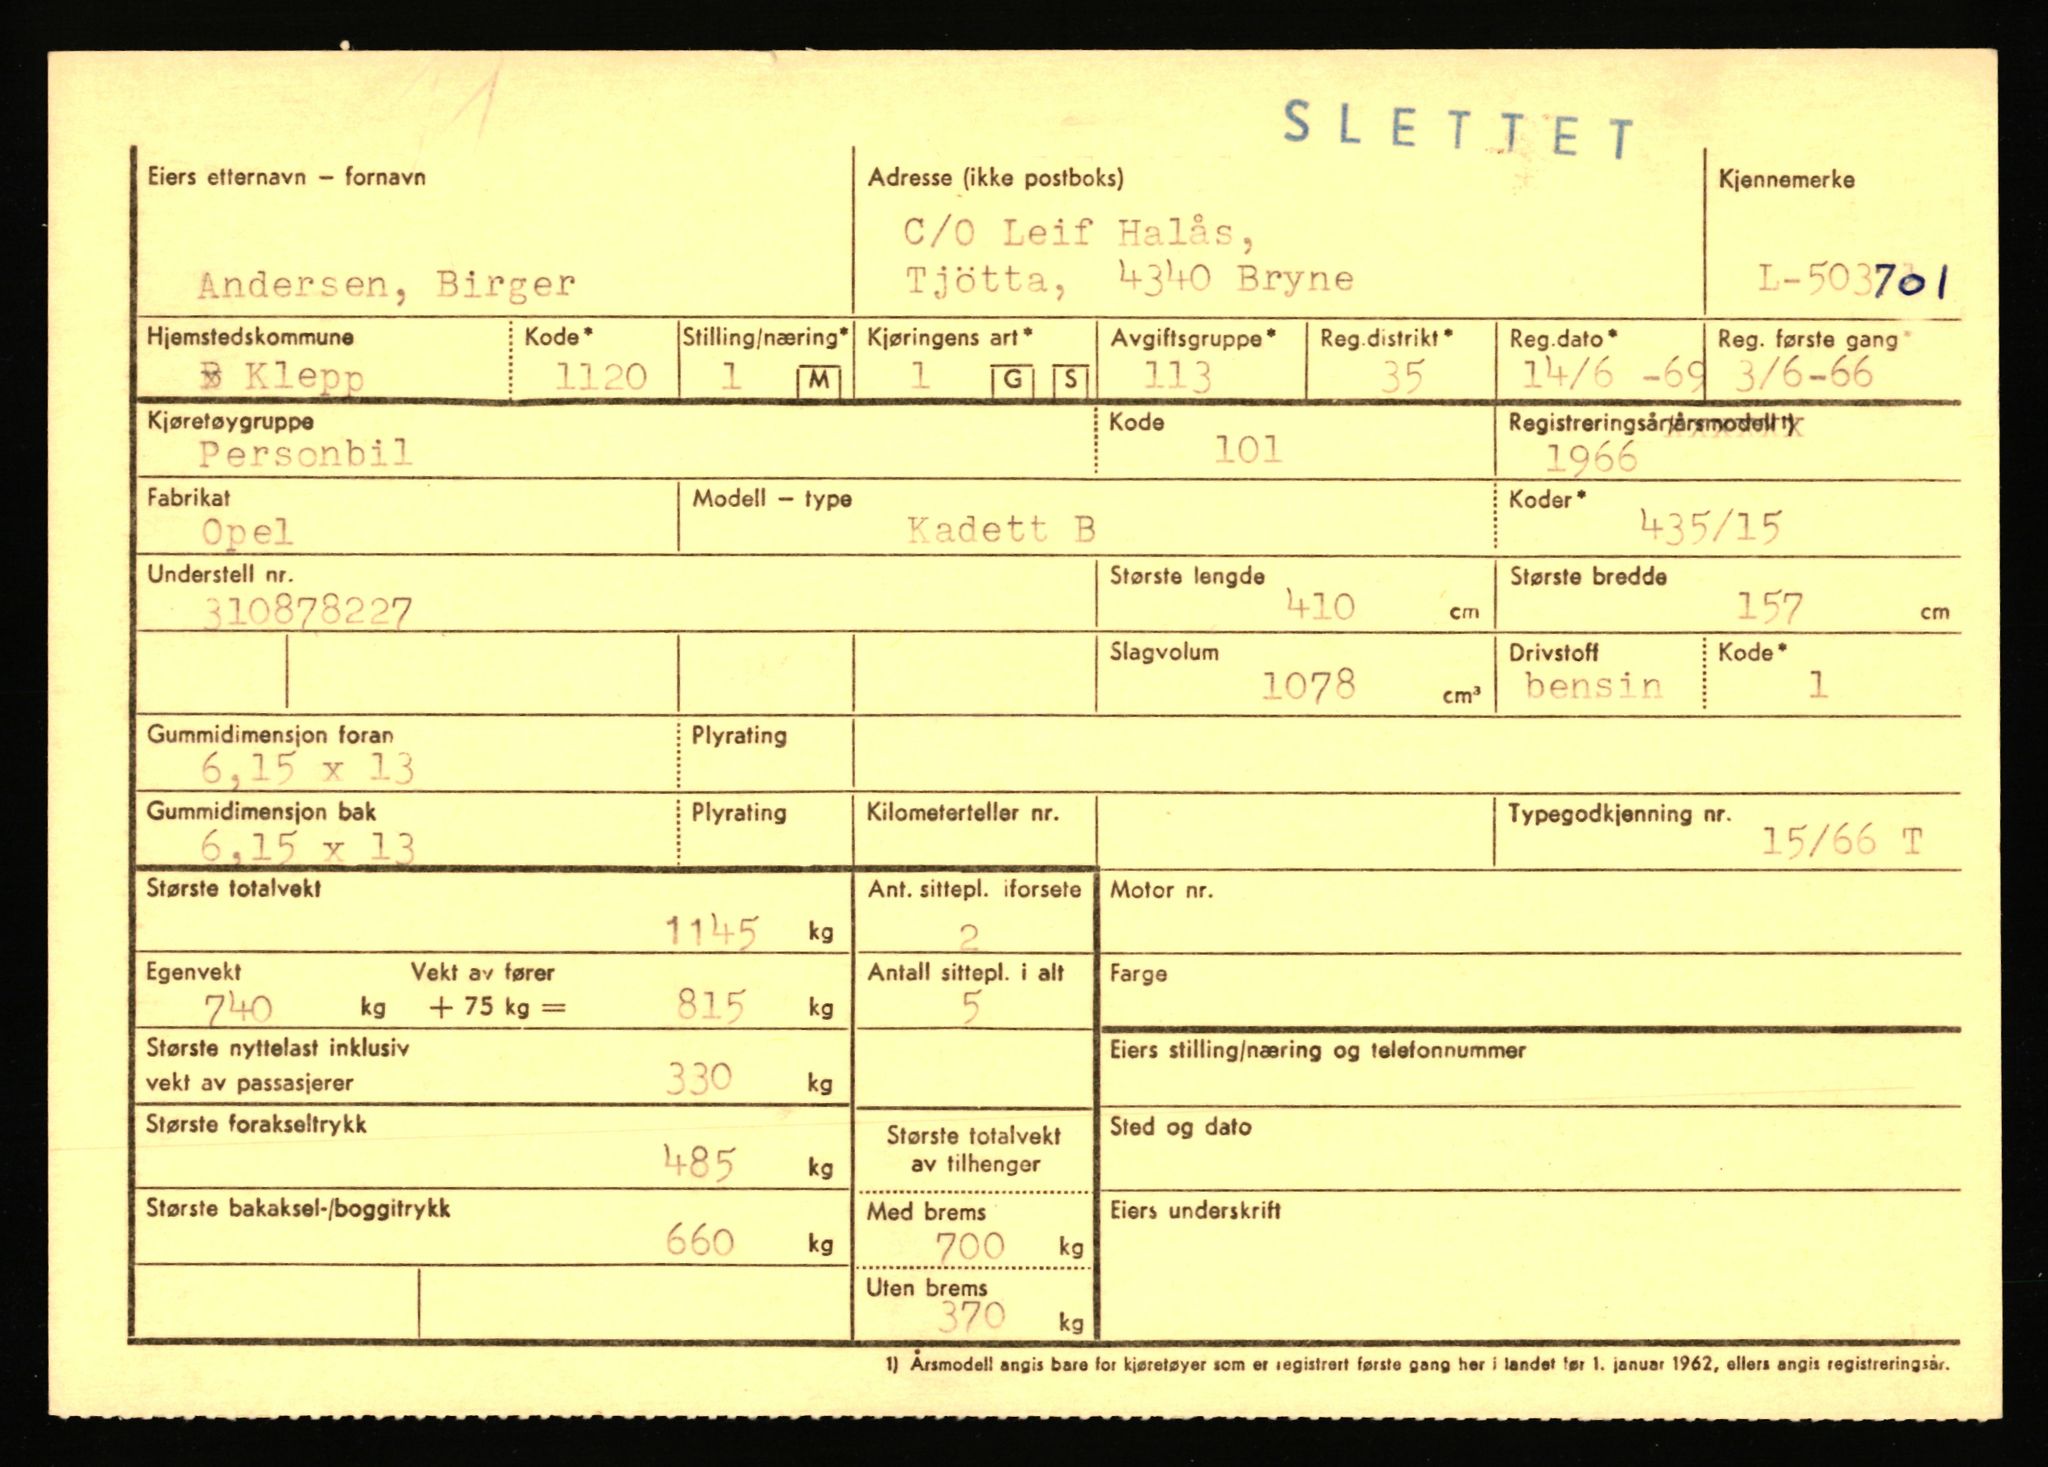 SLETTET
Eiers etternavn – fornavn
Andersen, Birger
Adresse (ikke postboks)
C/O Leif Halås,
Tjötta, 4340 Bryne
Kjennemerke
L-503701
Hjemstedskommune
Klepp
Kode*
1120
Stilling/næring*
1 M
Kjøringens art*
1 G S
Avgiftsgruppe*
113
Reg.distrikt*
35
Reg.dato*
14/6 -69
Reg. første gang*
3/6-66
Kjøretøygruppe
Personbil
Kode
101
Registreringsår/årsmodell 1)
1966
Fabrikat
Opel
Modell – type
Kadett B
Koder*
435/15
Understell nr.
310878227
Største lengde
410 cm
Største bredde
157 cm
Slagvolum
1078 cm³
Drivstoff
bensin
Kode*
1
Gummidimensjon foran
6,15 x 13
Plyrating
Gummidimensjon bak
6,15 x 13
Plyrating
Kilometerteller nr.
Typegodkjenning nr.
15/66 T
Største totalvekt
1145 kg
Ant. sittepl. i forsete
2
Motor nr.
Egenvekt
740 kg
Vekt av fører
+ 75 kg = 815 kg
Antall sittepl. i alt
5
Farge
Største nyttelast inklusiv
vekt av passasjerer 330 kg
Eiers stilling/næring og telefonnummer
Største forakseltrykk
485 kg
Største totalvekt
av tilhenger
Sted og dato
Største bakaksel-/boggitrykk
660 kg
Med brems
700 kg
Eiers underskrift
Uten brems
370 kg
1) Årsmodell angis bare for kjøretøyer som er registrert første gang her i landet før 1. januar 1962, ellers angis registreringsår.